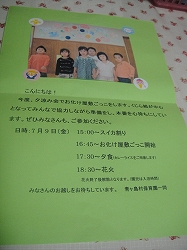 こんにちは！
今度、夕涼み会でお化け屋敷ごっこをします。くじら組が中心
となってみんなで協力しながら準備をし、本番を心待ちにしてい
ます。ぜひみなさんも、ご参加ください。
日時：７月９日（金） 15:00～スイカ割り
16:45～お化け屋敷ごっこ開始
17:30～夕食
18:30～花火
みなさんのお越しをお待ちしています。 青ヶ島村保育園一同